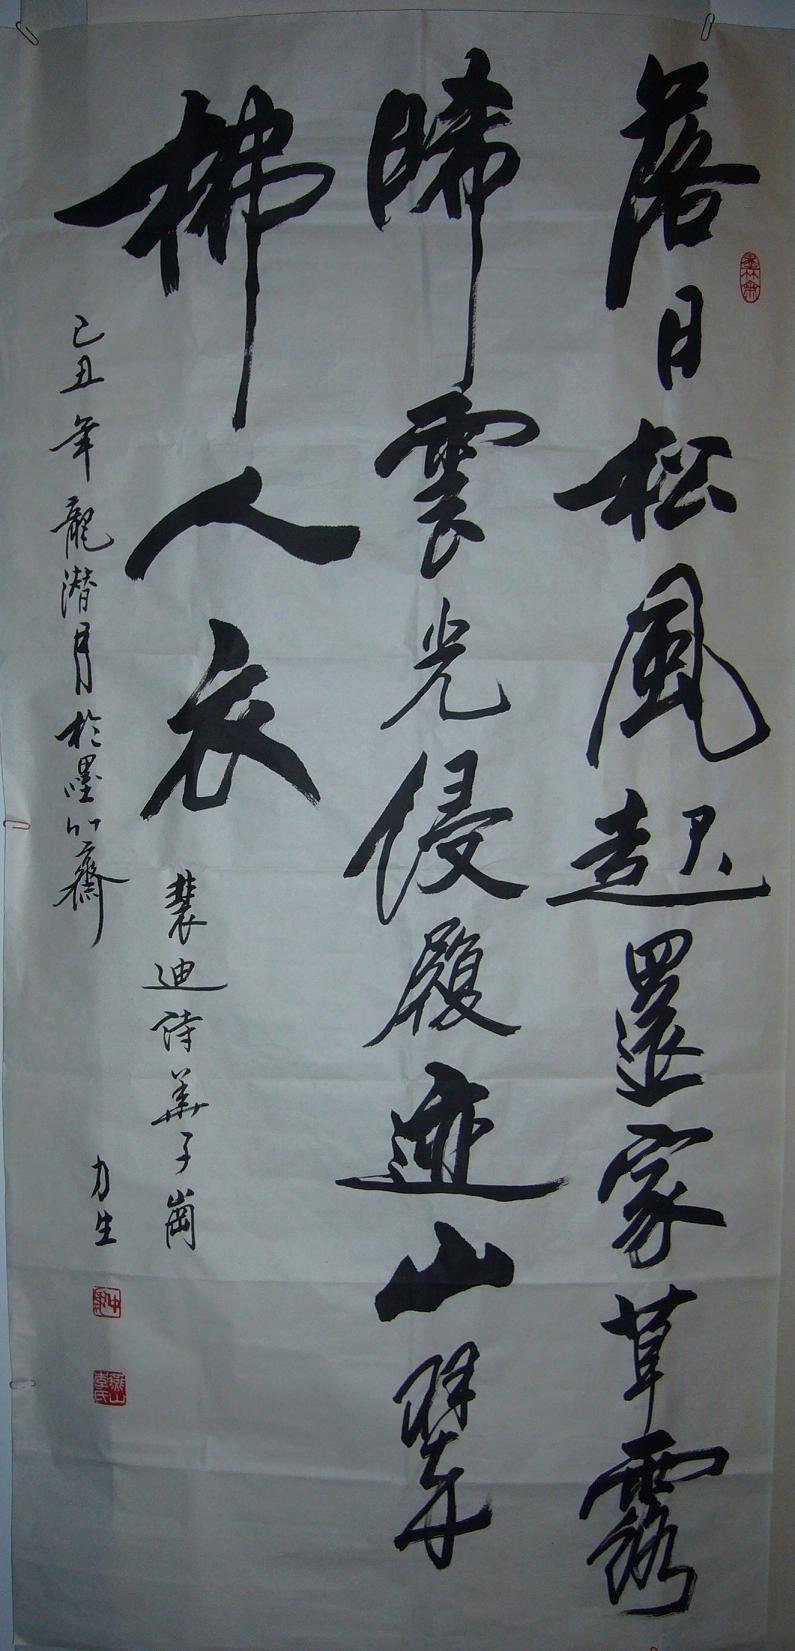 落日松風起還家草露
晞雲光侵履迹山翠
拂人衣
裴迪诗華子崗
己丑年龍潜月於墨竹齋
力生